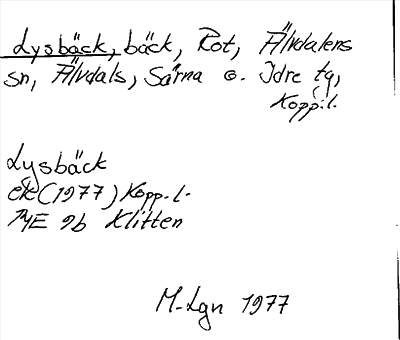 Lysbäck, bäck, Rot, Älvdalens
sn, Älvdals, Särna o. Idre tg,
Kopp. l.
Lysbäck
ek (1977) Kopp. l.
14E 9b Klitten
M-Lgn 1977